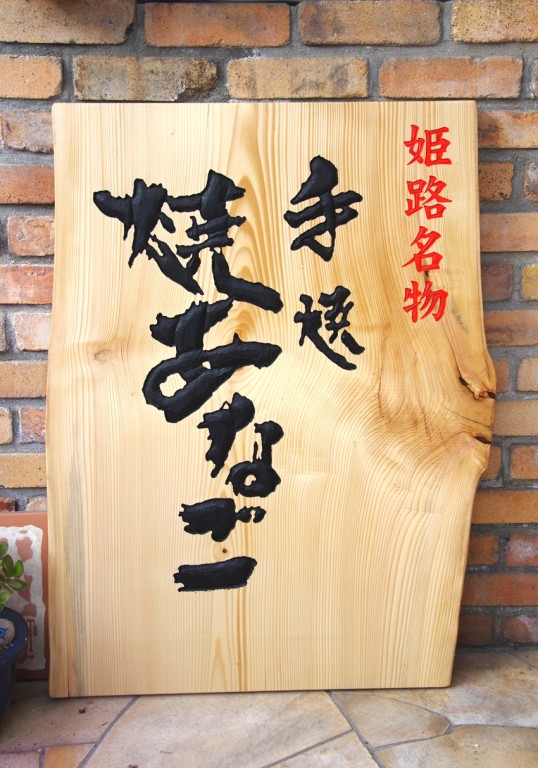 姫路名物
手選
焼あなご